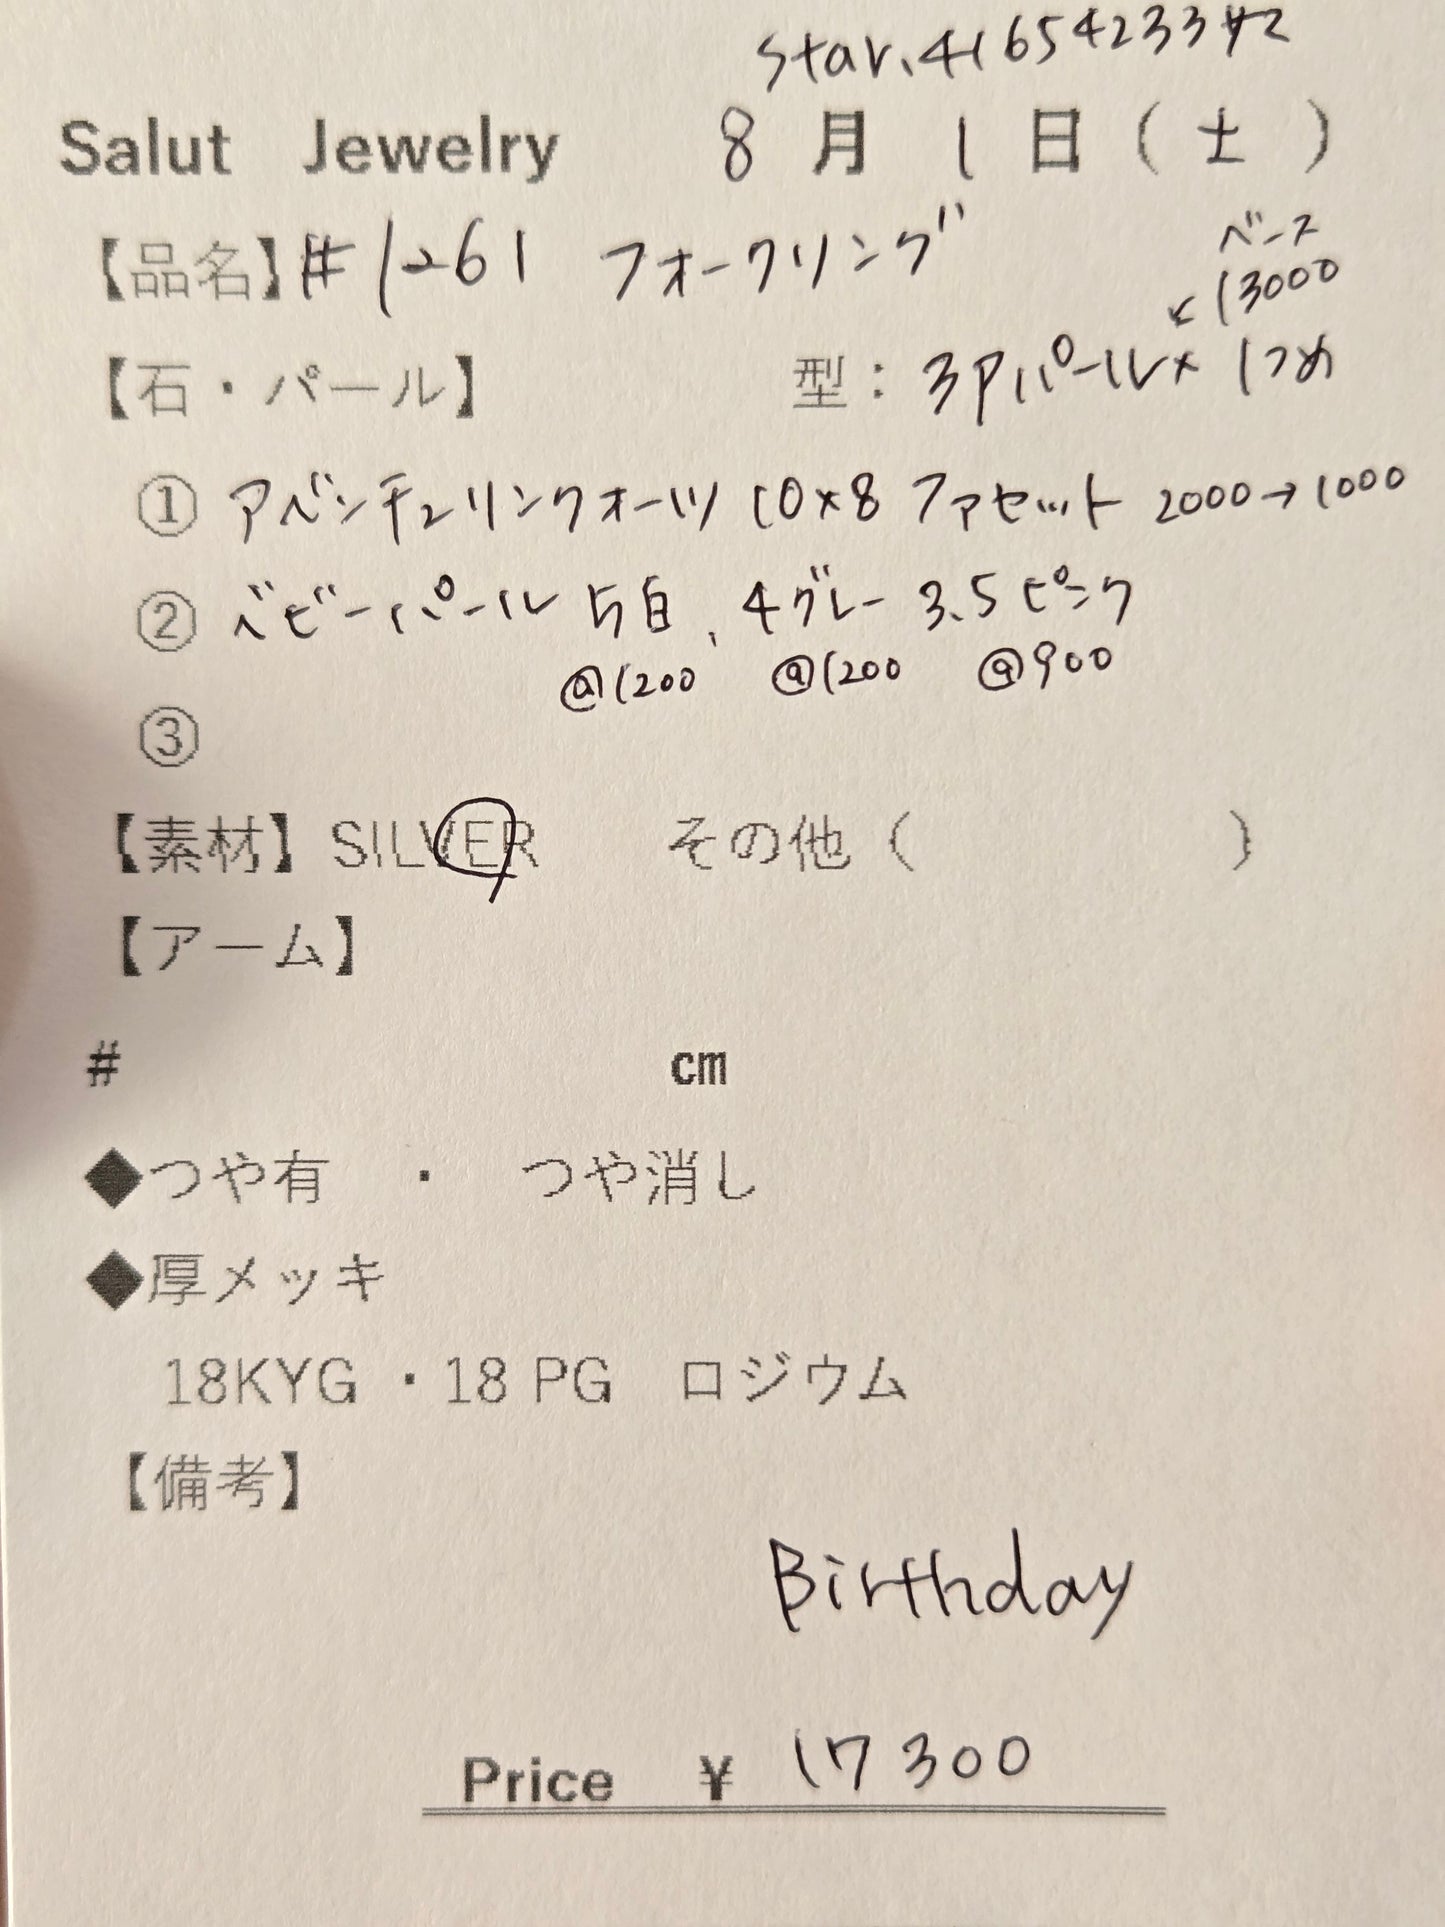 Star.4165423342
Salut Jewelry 8月1日(土)
【品名】#1261 フォークリング
ベース
13000
【石・パール】 型：3Pパール× 1つめ
① アベンチュリンクォーツ 10×8 ファセット 2000→1000
② ベビーパール 5白、4グレー 3.5ピンク
@1200 @1200 @900
③
【素材】SILVER その他（ ）
【アーム】
# cm
◆つや有 ・ つや消し
◆厚メッキ
18KYG ・18 PG ロジウム
【備考】
Birthday
Price ¥ 17300